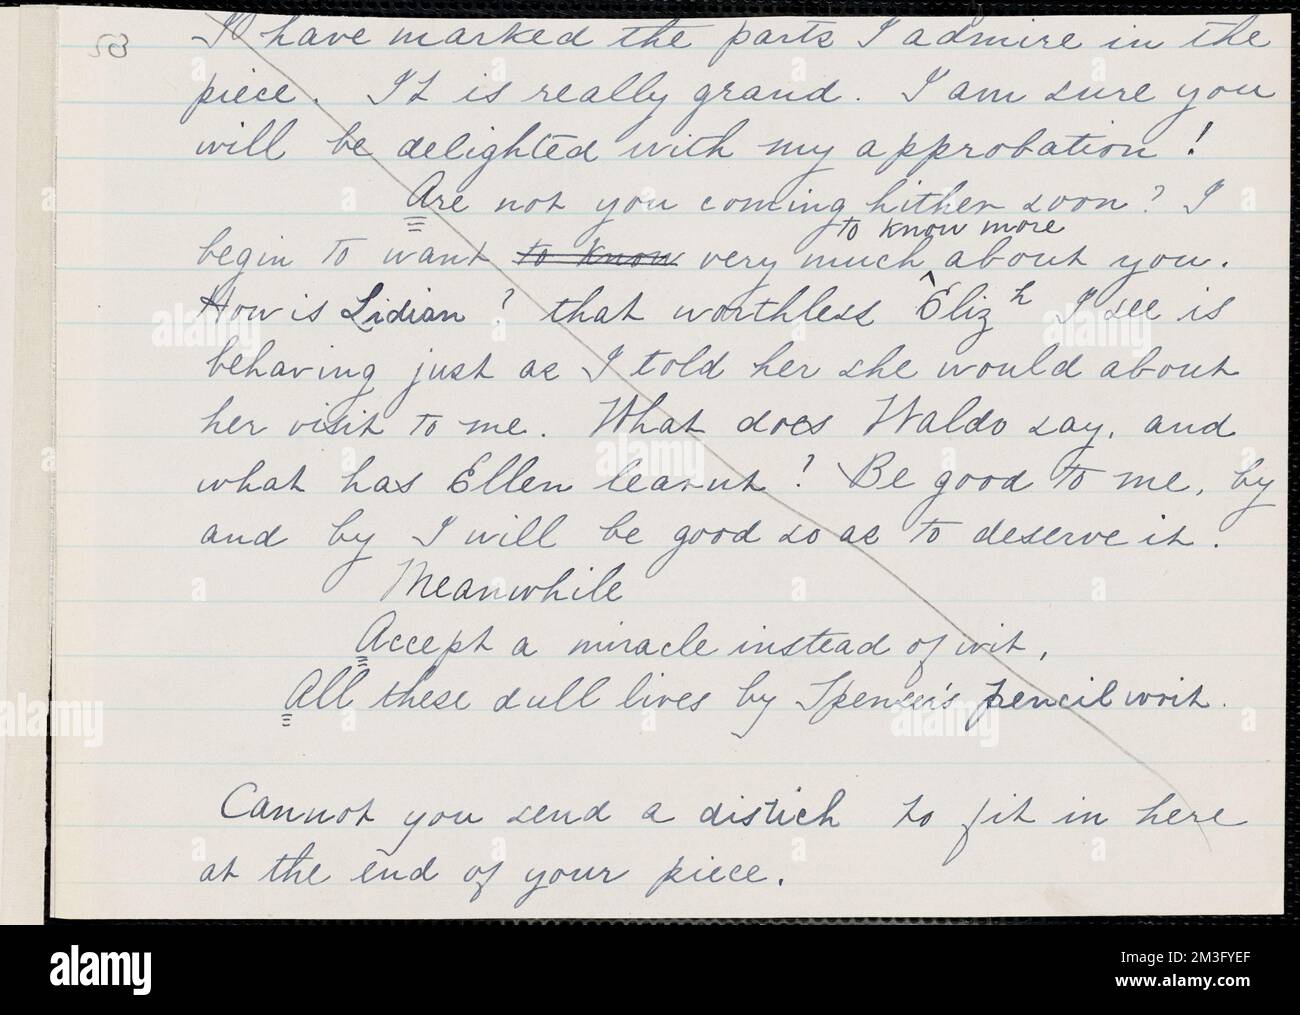 53
I have marked the parts I admire in the
piece. It is really grand. I am sure you
will be delighted with my approbation!
Are not you coming hither soon? I
to know more
begin to want to know very much ^ about you.
How is Lidian? that worthless Eliz h I see is
behaving just as I told her she would about
her visit to me. What does Waldo say, and
what has Ellen learnt? Be good to me, by
and by I will be good so as to deserve it.
Meanwhile
Accept a miracle instead of wit,
All these dull lives by Spenser's pencil writ.
Cannot you send a distich to fit in here
at the end of your piece.
alamy
Image ID: 2M3FYEF
www.alamy.com